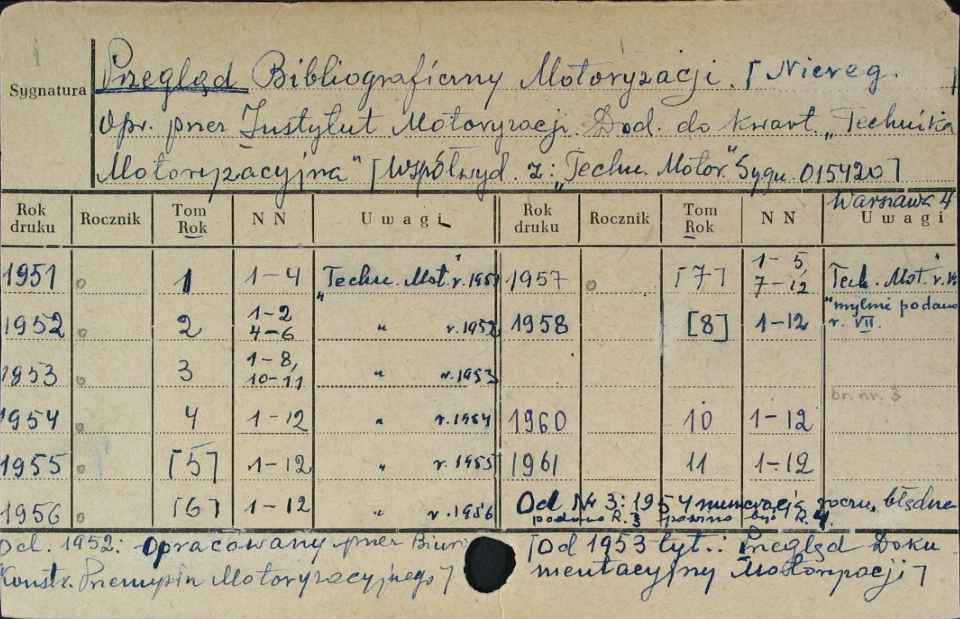 Sygnatura
Przegląd Bibliograficzny Motoryzacji. [Niereg. ]
Opr. przez Instytut Motoryzacji. Dod. do kwart. „Technika
Motoryzacyjna" [Współwyd. z: „Techn. Motor." Sygn. 015420]
Warszawa 4
Rok druku Rocznik Tom Rok NN Uwagi Rok druku Rocznik Tom Rok NN Uwagi
1951 1 1-4 „Techn. Mot." r. 1951 1957 [7] 1-5, 7-12 „Tech. Mot." r.
1952 2 1-2 4-6 " r. 1952 1958 [8] 1-12 mylnie podano r. VII.
1953 3 1-8, 10-11 " r. 1953
br. nr. 3
1954 4 1-12 " r. 1954 1960 10 1-12
1955 [5] 1-12 " r. 1955 1961 11 1-12
1956 [6] 1-12 " r. 1956 Od Nr 3: 1954 numeracja roczn. błędna
podano R. 3 powinno być R. 4.
Od. 1952: Opracowany przez Biuro
Konstr. Przemysłu Motoryzacyjnego]
[Od 1953 tyt.: Przegląd Doku
mentacyjny Motoryzacji]